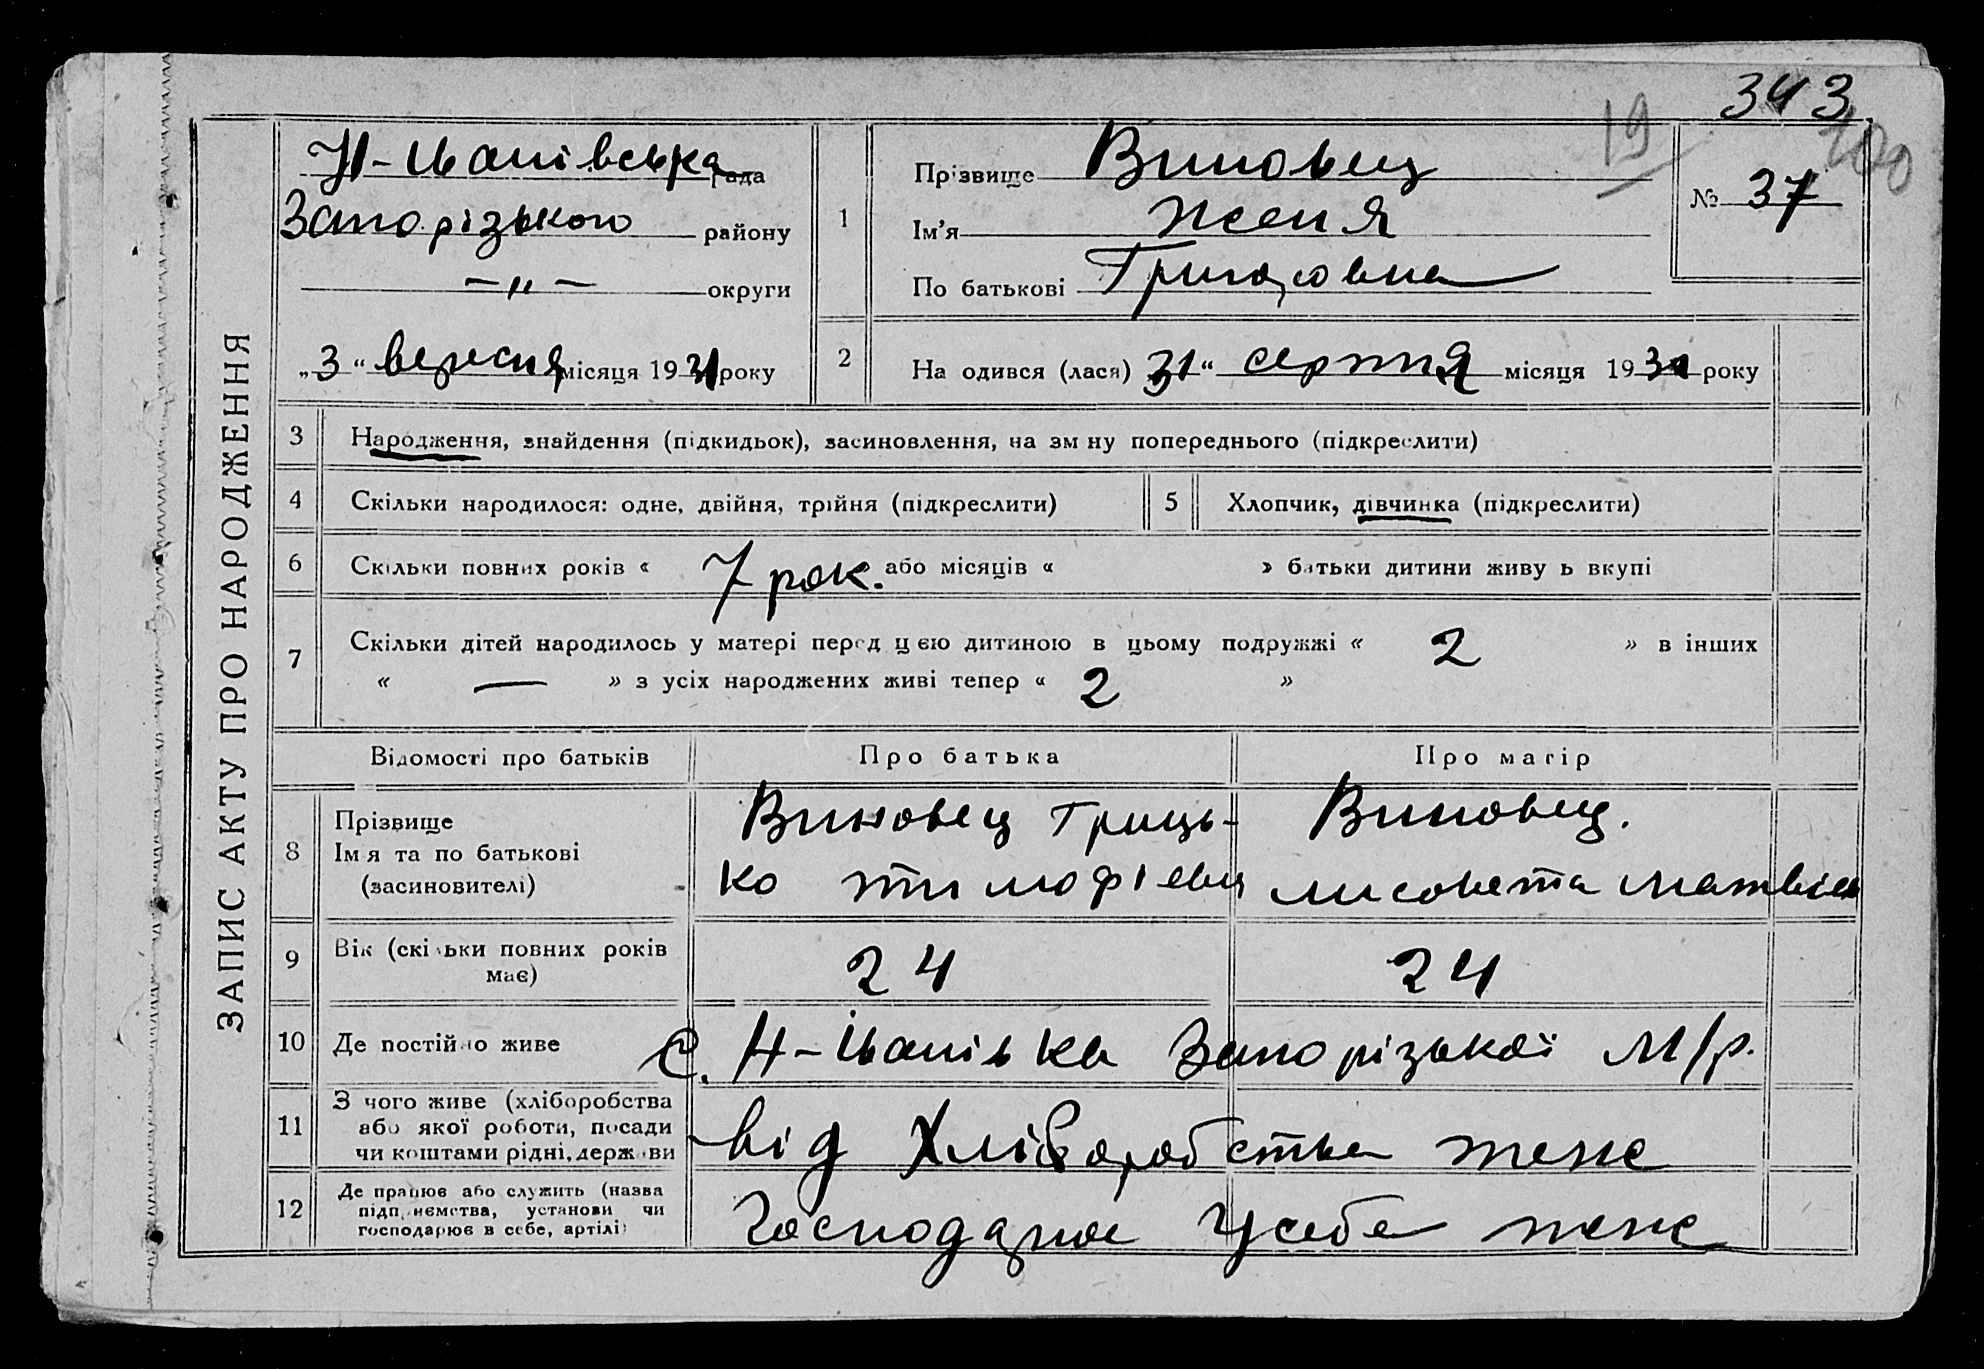 343
19
100
ЗАПИС АКТУ ПРО НАРОДЖЕННЯ
Н-Іванівська рада
Запорізького району
– „ – округи
„3" вересня місяця 1931 року
1 Прізвище Виновец
Ім'я Женя
По батькові Григоровна
№ 37
2 На одився (лася) 31" серпня місяця 1931 року
3 Народження, знайдення (підкидьок), засиновлення, на зм ну попереднього (підкреслити)
4 Скільки народилося: одне, двійня, трійня (підкреслити) 5 Хлопчик, дівчинка (підкреслити)
6 Скільки повних років « 7 рок. або місяців « » батьки дитини живу ь вкупі
7 Скільки дітей народилось у матері перед цією дитиною в цьому подружжі « 2 » в інших
« — » з усіх народжених живі тепер « 2 »
Відомості про батьків Про батька Про матір
8 Прізвище
Ім я та по батькові
(засиновителі)
Виновец Гриць-
ко тимофіевич
Виновец.
лисовета матвіев
9 Вік (скі ьки повних років
має)
24 24
10 Де постійно живе с. Н-Іванівка Запорізької М/р.
11 З чого живе (хліборобства
або якої роботи, посади
чи коштами рідні, держ ви
від Хліборобства теж
12 Де працює або служить (назва
підп иємства, установи чи
господарює в себе, артілі)
Господарює у себе теж